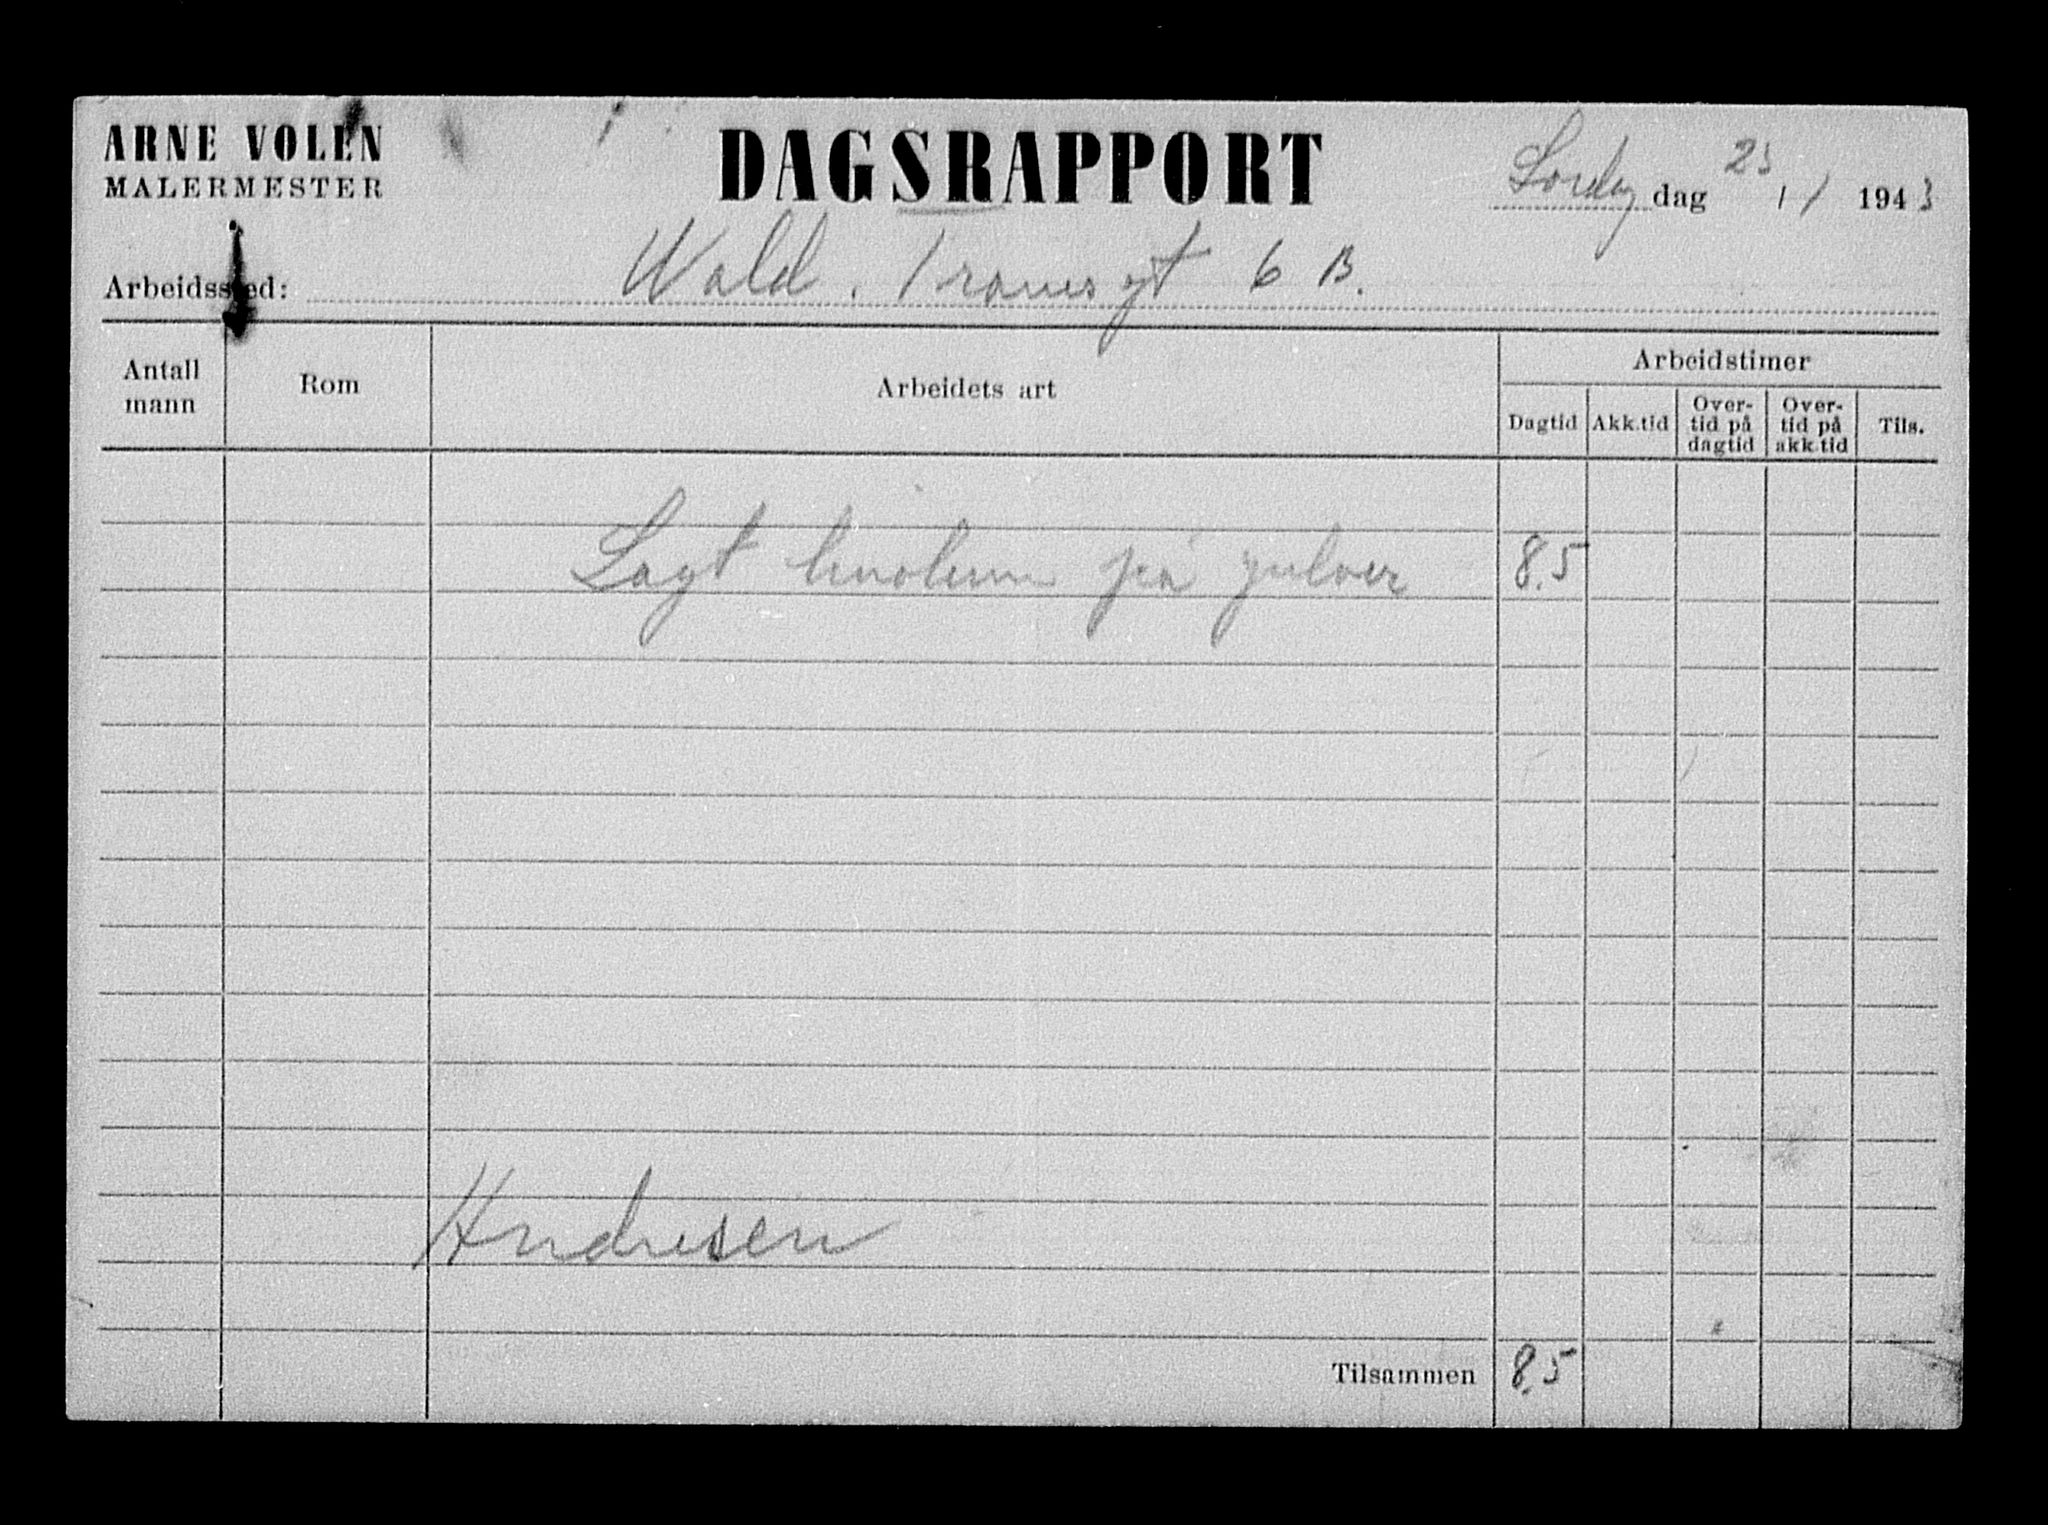 ARNE VOLEN
MALERMESTER
DAGSRAPPORT
Lordag dag 23 / 1 1943
Arbeidssted: Wald. Tromsgt 6 B.
Antall mann
Rom
Arbeidets art
Arbeidstimer
Dagtid
Akk.tid
Over-
tid på
dagtid
Over-
tid på
akk.tid
Tils.
Lagt linoleum på gulver 8.5
Andresen
Tilsammen 8.5